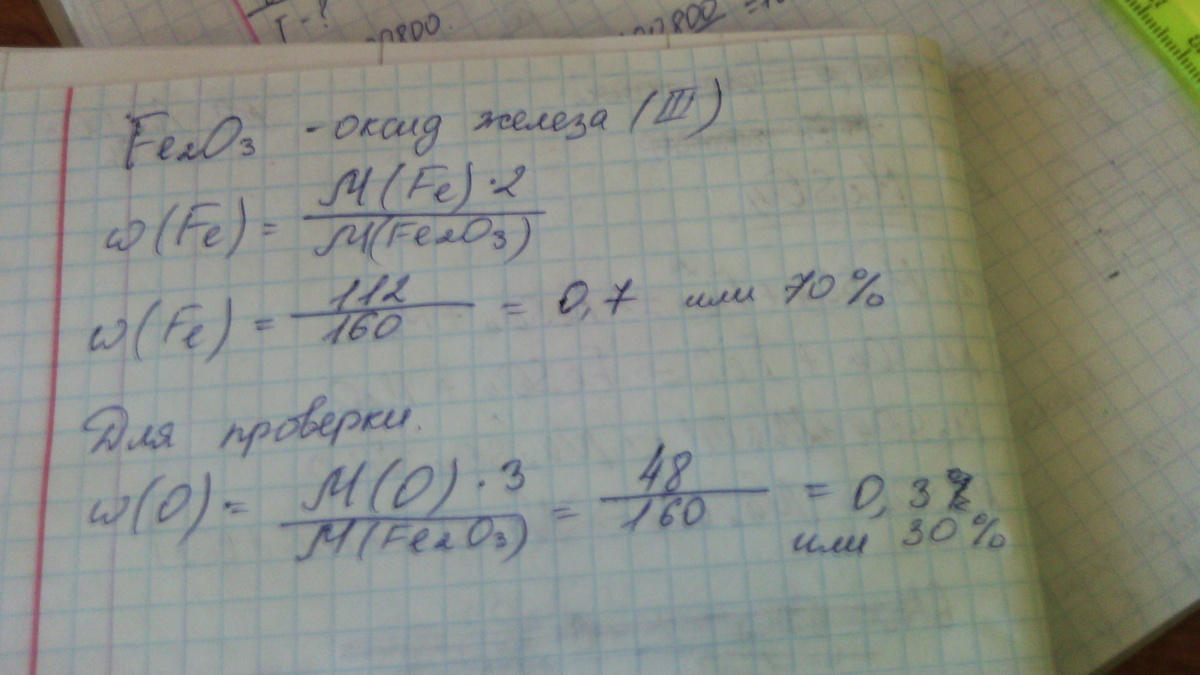 Г-?
00800.
Fe₂O₃ - оксид железа (III)
w(Fe) = M(Fe)·2 / M(Fe₂O₃)
w(Fe) = 112 / 160 = 0,7 или 70%
Для проверки.
w(O) = M(O)·3 / M(Fe₂O₃) = 48 / 160 = 0,3
или 30%